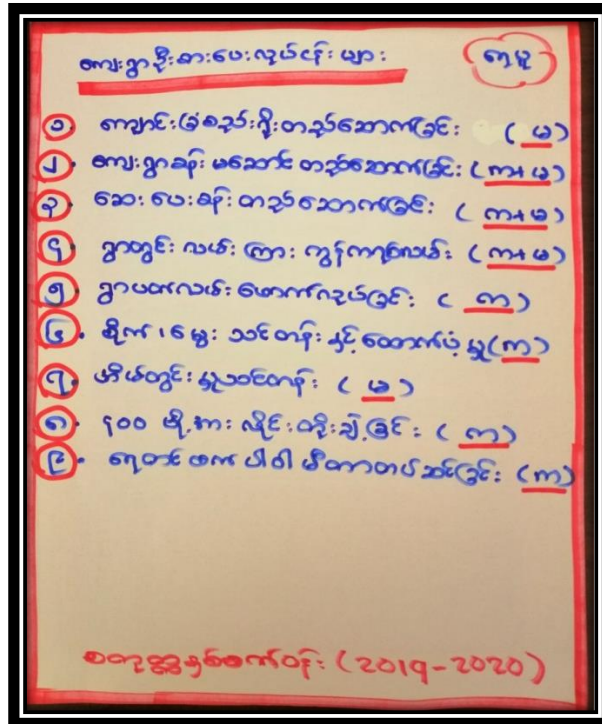 ကျေးရွာဦးစားပေးလုပ်ငန်းများ
ရာမူ
၁. ကျောင်းခြံစည်းရိုးတည်ဆောက်ခြင်း (မ)
၂. ကျေးရွာခန်းမဆောင် တည်ဆောက်ခြင်း (က+မ)
၃. ဆေးပေးခန်းတည်ဆောက်ခြင်း (က+မ)
၄. ရွာတွင်းလမ်းကြား ကွန်ကရစ်လမ်း (က+မ)
၅. ရွာပတ်လမ်းဖောက်လုပ်ခြင်း (က)
၆. စိုက်၊မွေး သင်တန်းနှင့်ထောက်ပံ့မှု(က)
၇. အိမ်တွင်းမှုသင်တန်း (မ)
၈. ၄၀၀ ဗို့အား လိုင်းတိုးချဲ့ခြင်း (က)
၉. ရေတင် ပါဝါမီတာတပ်ဆင်ခြင်း (က)
စတုတ္ထနှစ်စက်ဝန်း (2019-2020)